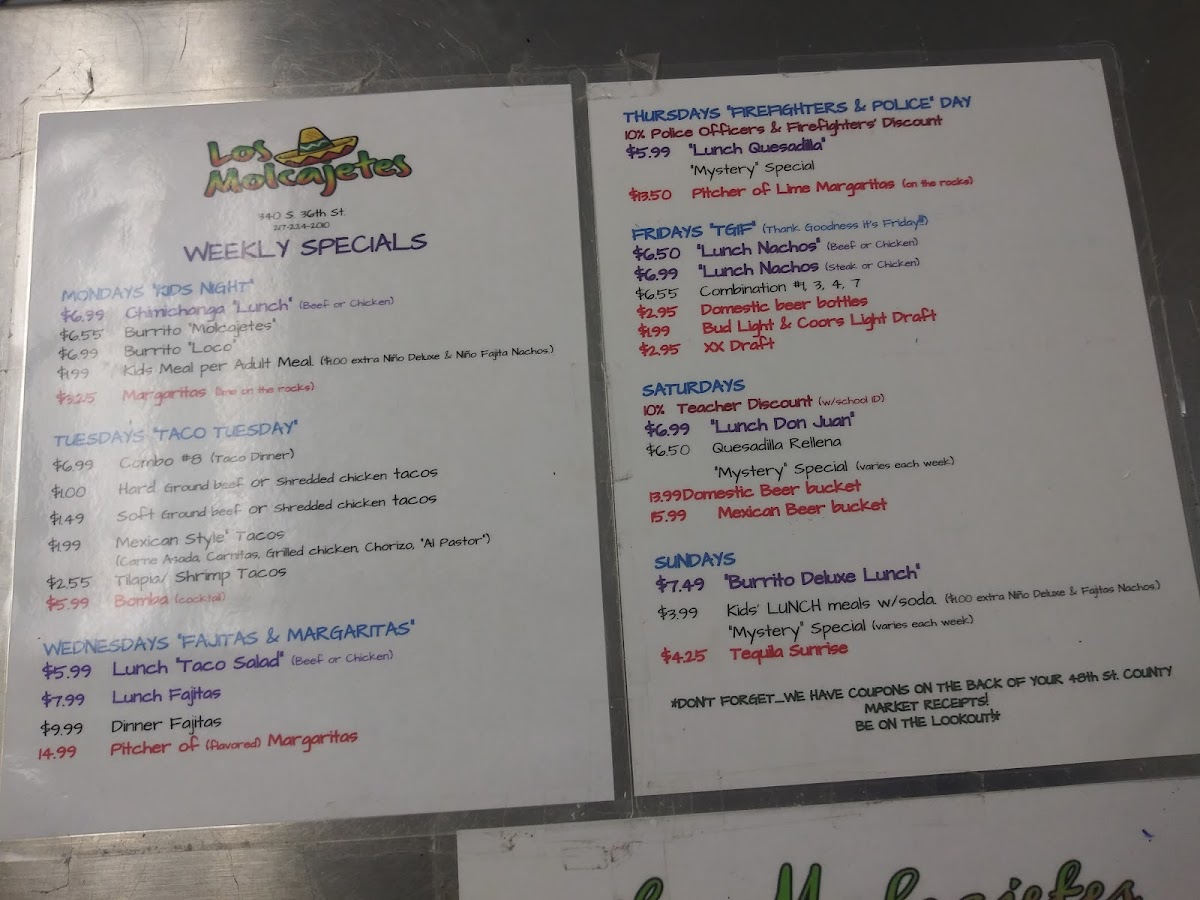 Los
Molcajetes
340 S. 36th St.
217-224-2010
WEEKLY SPECIALS
MONDAYS "KIDS NIGHT"
$6.99 Chimichanga "Lunch" (Beef or Chicken)
$6.55 Burrito "Molcajetes"
$6.99 Burrito "Loco"
$1.99 Kids Meal per Adult Meal. ($1.00 extra Niño Deluxe & Niño Fajita Nachos.)
$3.25 Margaritas (lime on the rocks)
TUESDAYS "TACO TUESDAY"
$6.99 Combo #8 (Taco Dinner)
$1.00 Hard Ground beef or Shredded chicken tacos
$1.49 Soft Ground beef or Shredded chicken tacos
$1.99 Mexican Style" Tacos
(Carne Asada, Carnitas, Grilled chicken, Chorizo, "Al Pastor")
$2.55 Tilapia/ Shrimp Tacos
$5.99 Bomba (cocktail)
WEDNESDAYS "FAJITAS & MARGARITAS"
$5.99 Lunch "Taco Salad" (Beef or Chicken)
$7.99 Lunch Fajitas
$9.99 Dinner Fajitas
14.99 Pitcher of (flavored) Margaritas
THURSDAYS "FIREFIGHTERS & POLICE" DAY
10% Police Officers & Firefighters' Discount
$5.99 "Lunch Quesadilla"
"Mystery" Special
$13.50 Pitcher of Lime Margaritas (on the rocks)
FRIDAYS "TGIF" (Thank Goodness it's Friday!!)
$6.50 "Lunch Nachos" (Beef or Chicken)
$6.99 "Lunch Nachos (Steak or Chicken)
$6.55 Combination #1, 3, 4, 7
$2.95 Domestic beer bottles
$1.99 Bud Light & Coors Light Draft
$2.95 XX Draft
SATURDAYS
10% Teacher Discount (w/school ID)
$6.99 "Lunch Don Juan"
$6.50 Quesadilla Rellena
"Mystery" Special (varies each week)
13.99 Domestic Beer bucket
15.99 Mexican Beer bucket
SUNDAYS
$7.49 "Burrito Deluxe Lunch"
$3.99 Kids' LUNCH meals w/soda. ($1.00 extra Niño Deluxe & Fajitas Nachos.)
"Mystery" Special (varies each week)
$4.25 Tequila Sunrise
*DON'T FORGET...WE HAVE COUPONS ON THE BACK OF YOUR 48th St. COUNTY
MARKET RECEIPTS!
BE ON THE LOOKOUT!*
Los Molcajetes